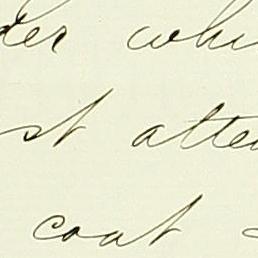 der whi
st atte
coat